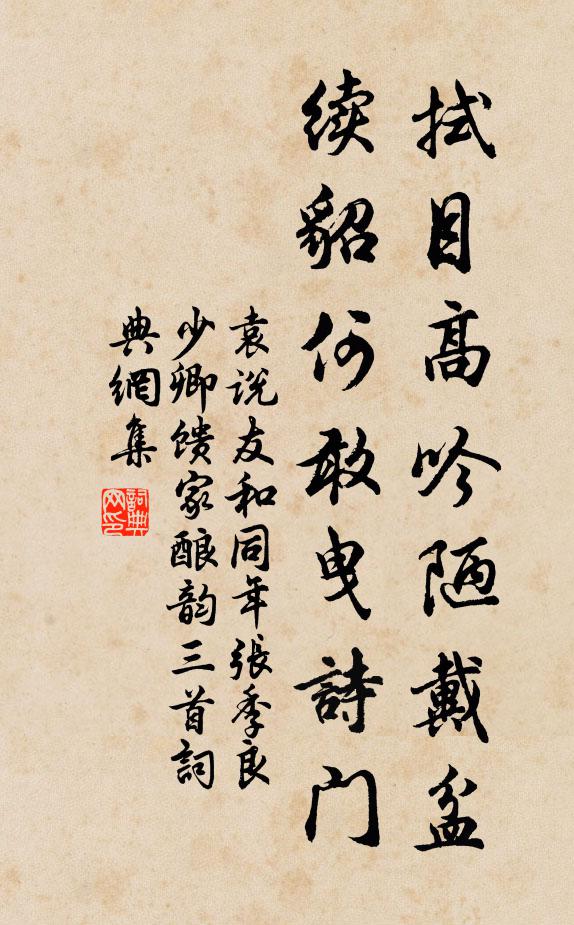 拭目高吟陋戴盆
续貂何敢曳詩门
袁说友和同年張季良
少卿馈家酿韵三首詞
典網集
詞典网印